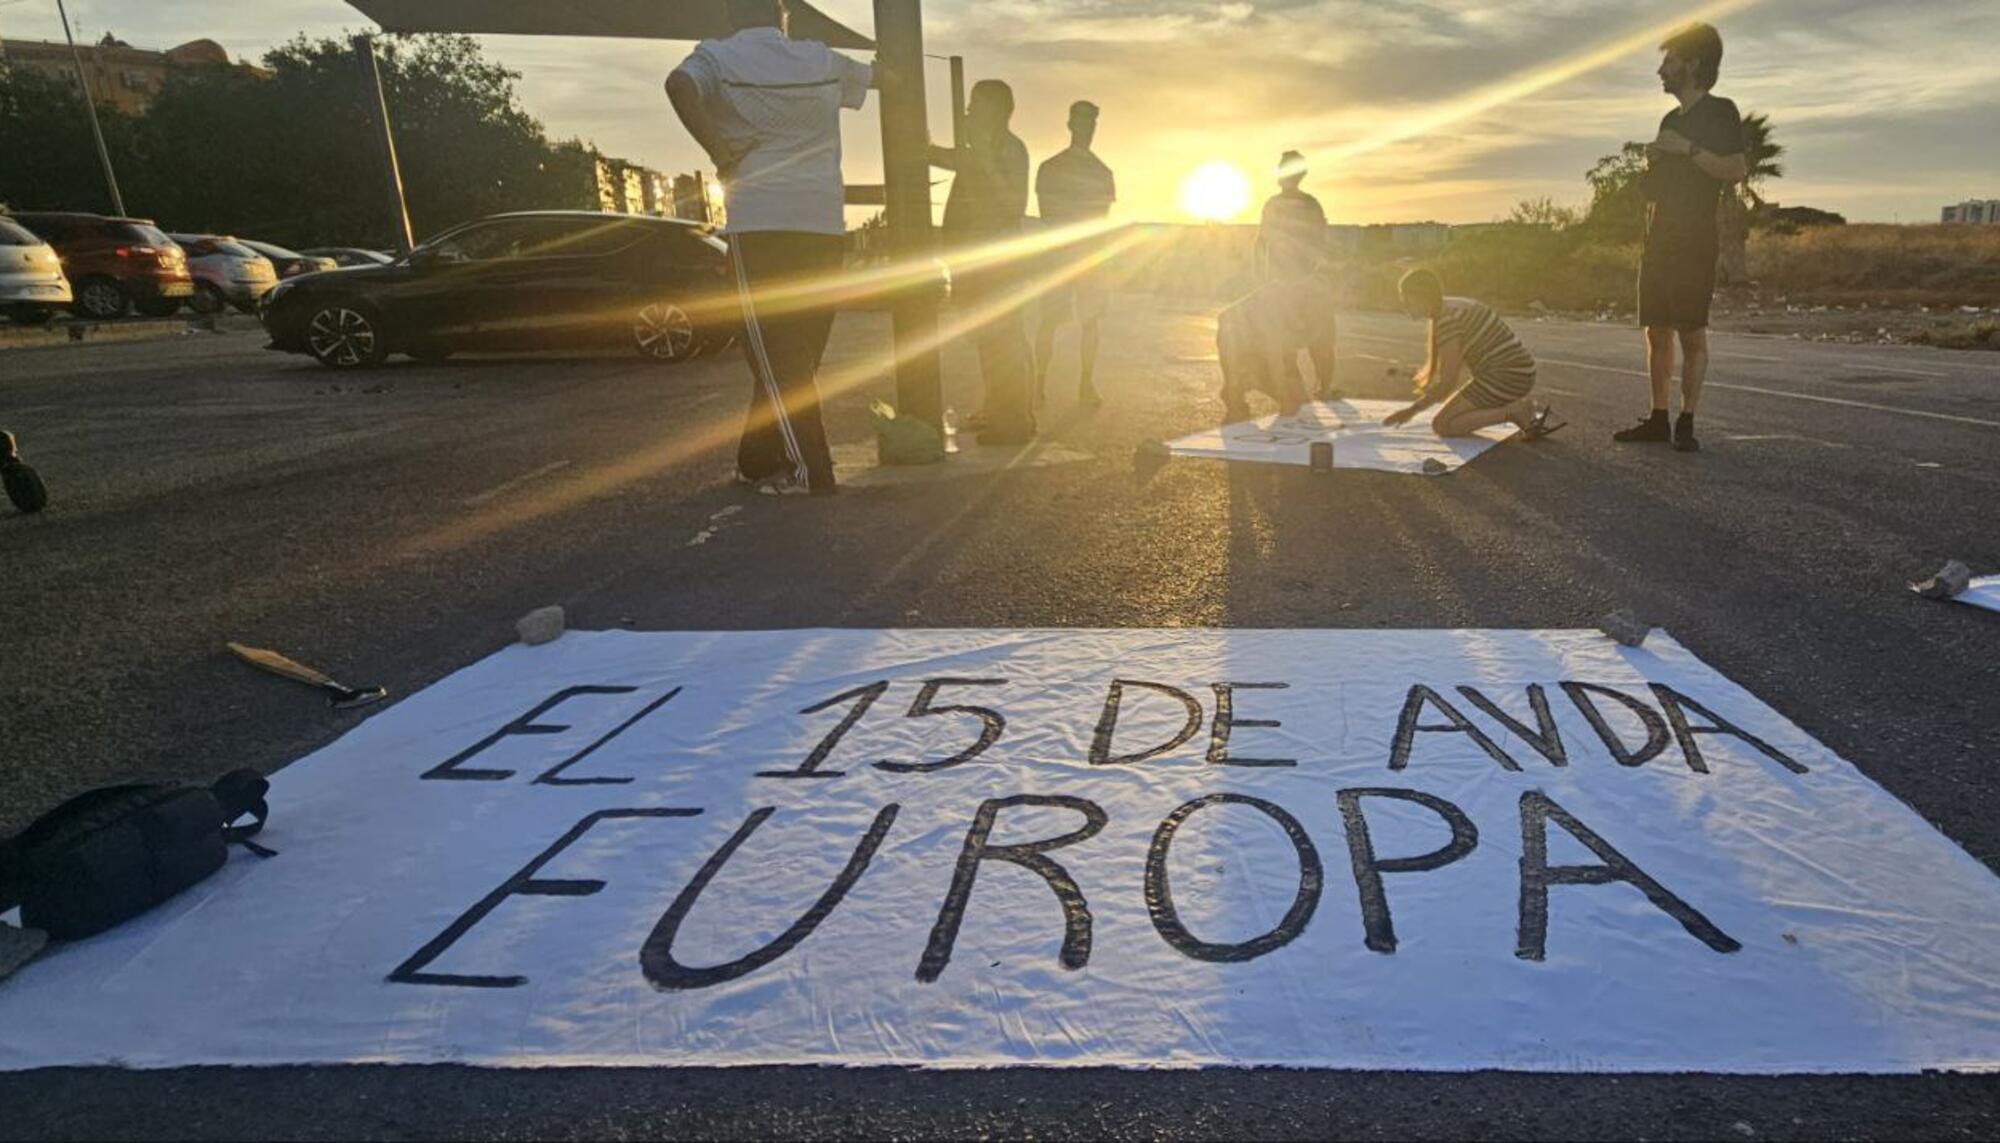 EL 15 DE AVDA
EUROPA